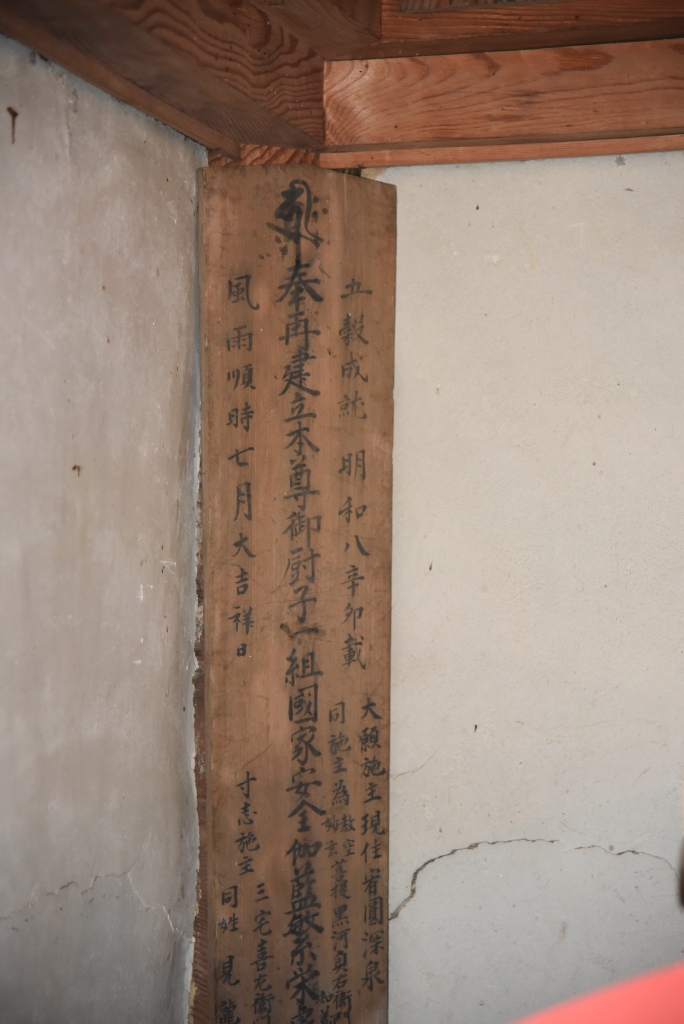 五穀成就 明和八辛卯載
大願施主現住宥圓深泉
同施主為教空妙玄菩提黒河貞右衛門
奉再建立本尊御厨子一組國家安全伽藍繁栄
風雨順時七月大吉祥日
寸志施主三宅喜左衛門
同姓